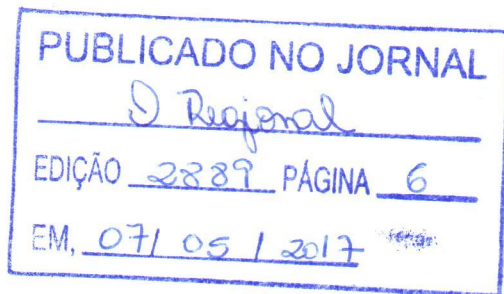 PUBLICADO NO JORNAL
O Regional
EDIÇÃO 2889 PÁGINA 6
EM, 07/ 05 / 2017